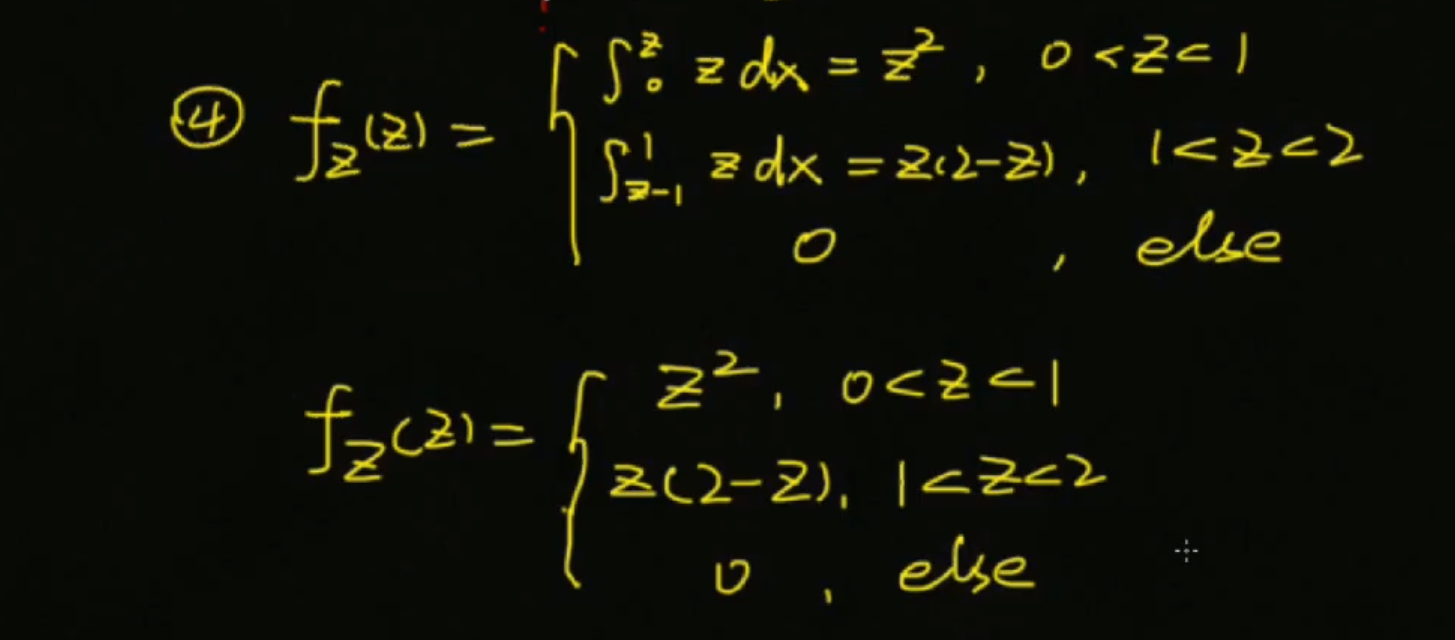 ④ f_Z(z) = { ∫₀ᶻ z dx = z², 0<z<1
∫_{z-1}^{1} z dx = z(2-z), 1<z<2
0 , else
f_Z(z) = { z², 0<z<1
z(2-z), 1<z<2
0 , else